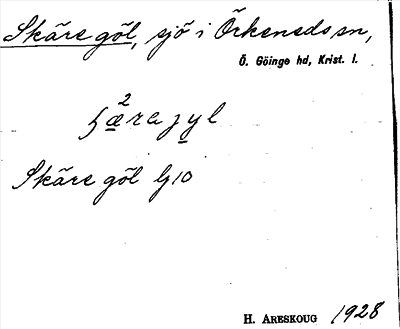 Skäre göl, sjö i Örkeneds sn,
Ö. Göinge hd, Krist. l.
2
ʂæra jyl
Skäre göl Gj 10
H. ARESKOUG 1928